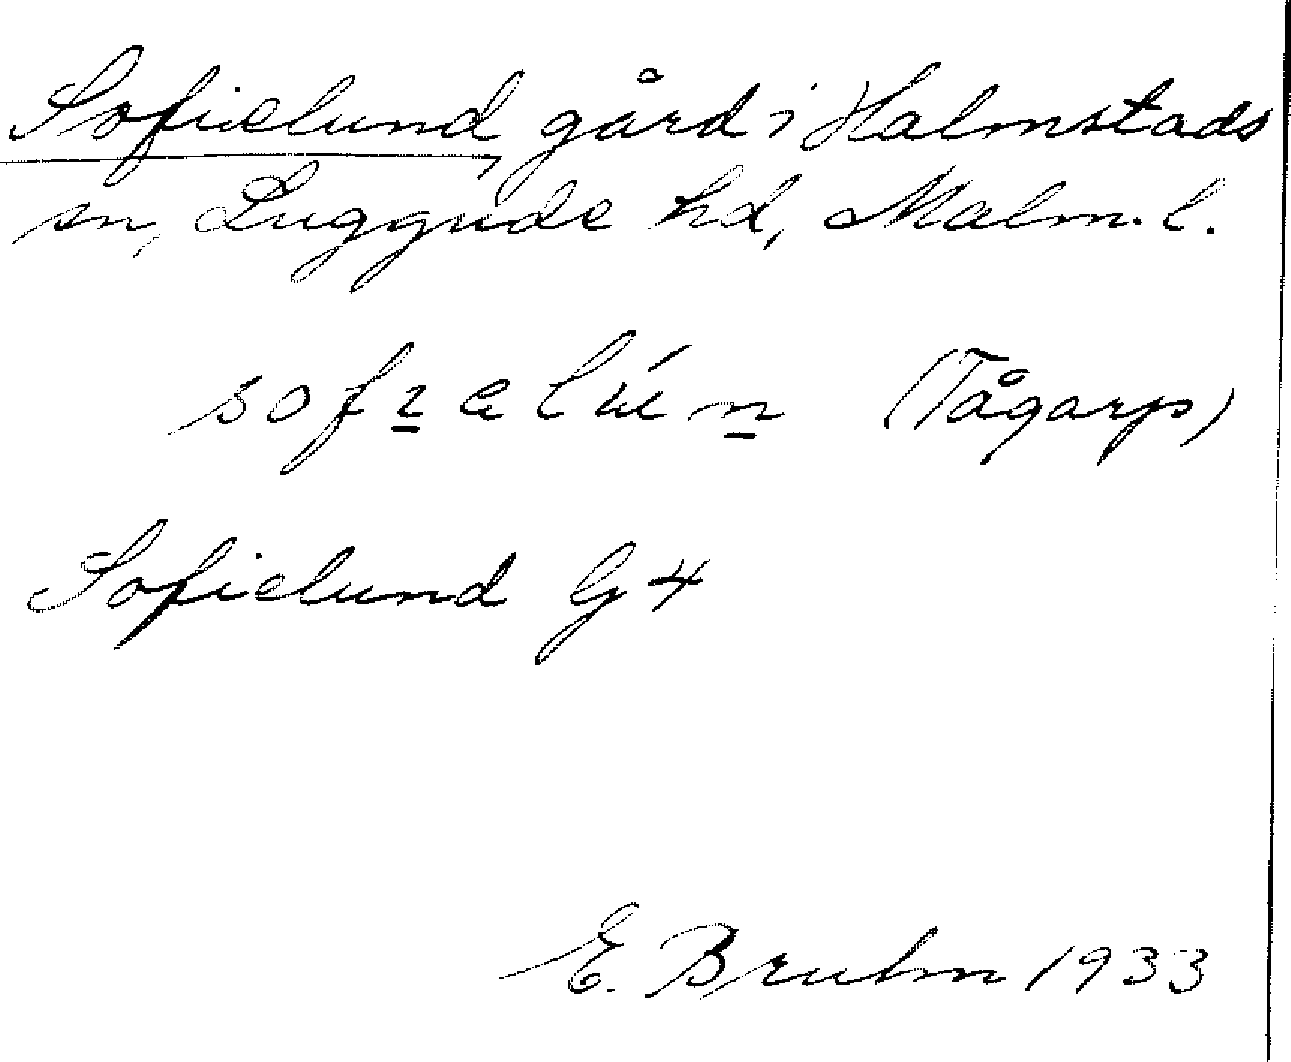 Sofielund, gård i Halmstads
sn, Luggude hd, Malm. l.
sofɪ̱əlún̲ (Tågarp)
Sofielund G 4
E. Bruhn 1933